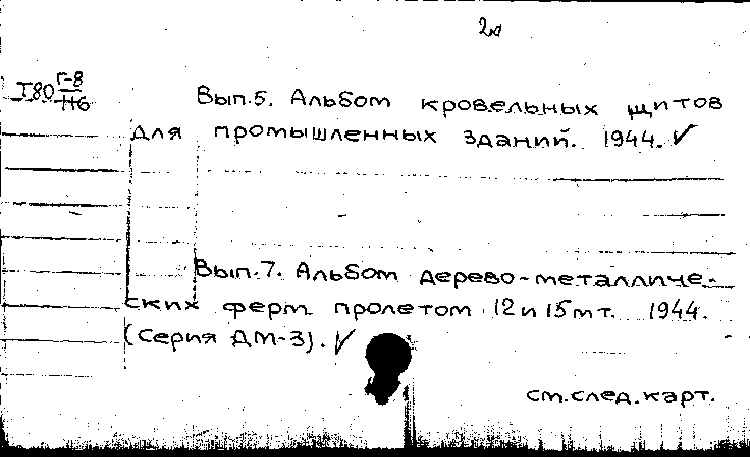 2
Т80 Г-8
Вып.5. Альбом кровельных щитов
для промышленных зданий. 1944. ✓
Вып.7. Альбом дерево-металличе-
ских ферм пролетом 12 и 15 мт. 1944.
(серия ДМ-3). ✓
см.след.карт.